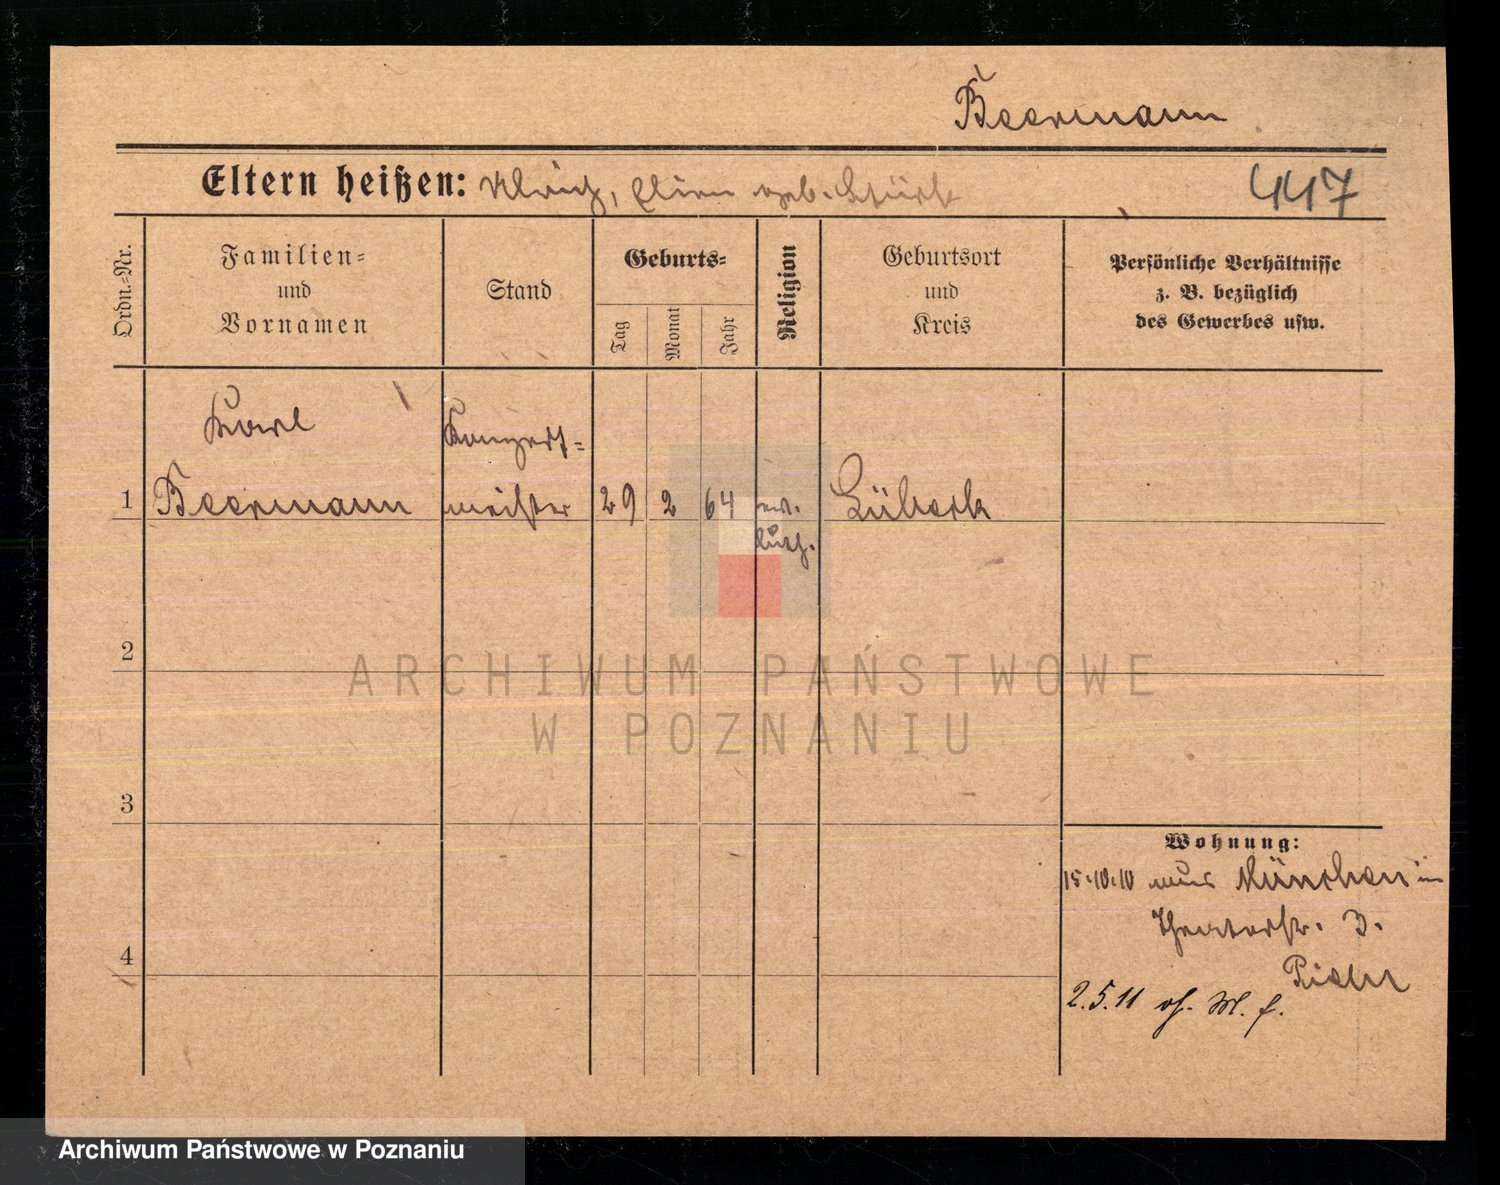 Beermann
Eltern heißen: geb.
447
Ordn.-Nr.
Familien-
und
Vornamen
Stand
Geburts-
Tag
Monat
Jahr
Religion
Geburtsort
und
Kreis
Persönliche Verhältnisse
z. B. bezüglich
des Gewerbes usw.
Karl
Konzert-
1 Beermann meister 29 2 64 Lübeck
luth.
2
ARCHIWUM PAŃSTWOWE
W POZNANIU
3
Wohnung:
15.10.10 aus München in
Theaterstr. 3.
4
2.5.11
Archiwum Państwowe w Poznaniu